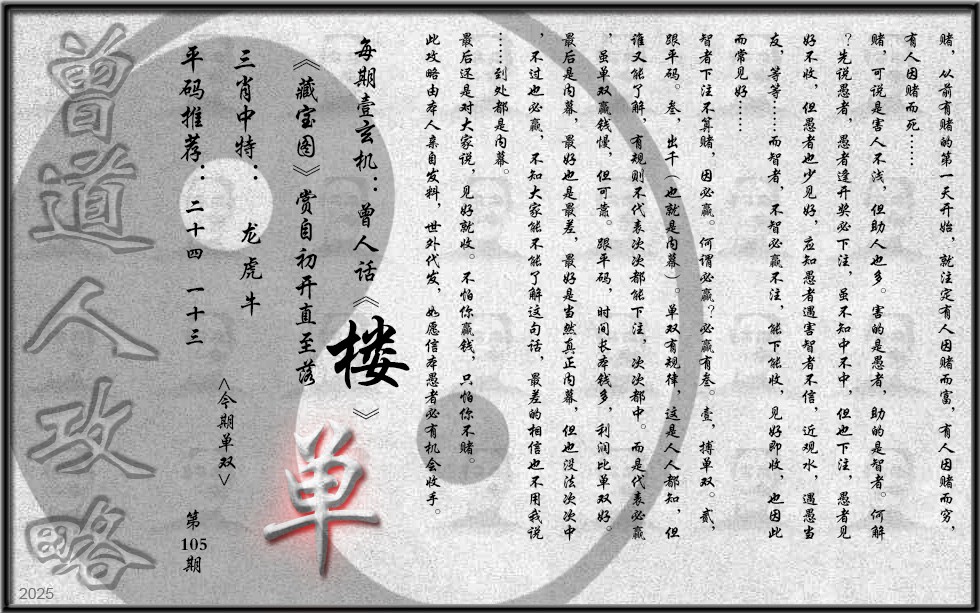 赌，从前有赌的第一天开始，就注定有人因赌而富，有人因赌而穷，
有人因赌而死……
赌，可说是害人不浅，但助人也多。害的是愚者，助的是智者。何解
？先说愚者，愚者逢开奖必下注，虽不知中不中，但也下注，愚者见
好不收，但愚者也少见好，应知愚者遇害智者不信，近观水，遇愚当
友，等等……而智者，不智必赢不注，能下能收，见好即收，也因此
而常见好……
智者下注不算赌，因必赢。何谓必赢？必赢有叁。壹，搏单双。贰，
跟平码。叁，出千（也就是内幕）。单双有规律，这是人人都知，但
谁又能了解，有规则不代表次次都能下注，次次都中。而是代表必赢
，虽单双赢钱慢，但可靠。跟平码，时间长本钱多，利润比单双好。
最后是内幕，最好也是最差，最好是当然真正内幕，但也没法次次中
，不过也必赢，不知大家能不能了解这句话，最差的相信也不用我说
……到处都是内幕。
最后还是对大家说，见好就收。不怕你赢钱，只怕你不赌。
此攻略由本人亲自发料，世外代发，如愿信本愚者必有机会收手。
每期壹玄机：曾人话《楼》
《藏宝图》赏自初开直至落
三肖中特：龙虎牛
平码推荐：二十四 一十三
<今期单双>
单
第105期
曾道人攻略
2025